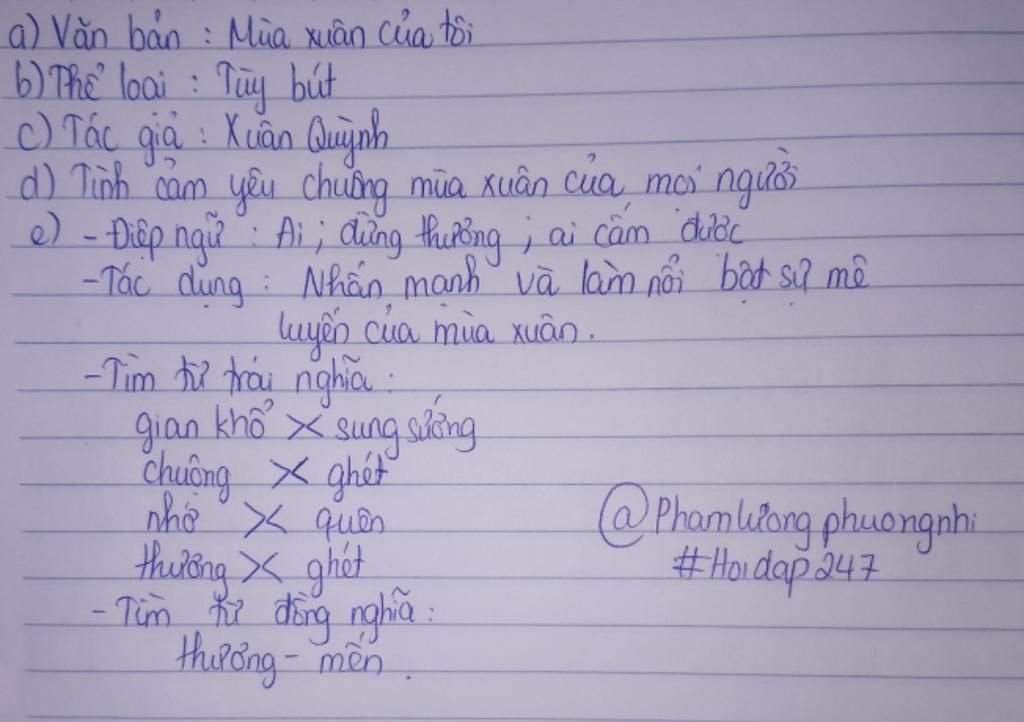 a) Văn bản : Mùa xuân của tôi
b) Thể loại : Tùy bút
c) Tác giả : Xuân Quỳnh
d) Tình cảm yêu chuộng mùa xuân của mọi người
e) - Điệp ngữ : Ai ; đừng thương ; ai cấm được
- Tác dụng : Nhấn mạnh và làm nổi bật sự mê
luyến của mùa xuân.
- Tìm từ trái nghĩa :
gian khổ X sung sướng
chuộng X ghét
nhớ X quên
thương X ghét
@Phamluongphuongnhi
#Hoidap247
- Tìm từ đồng nghĩa :
thương - mến.